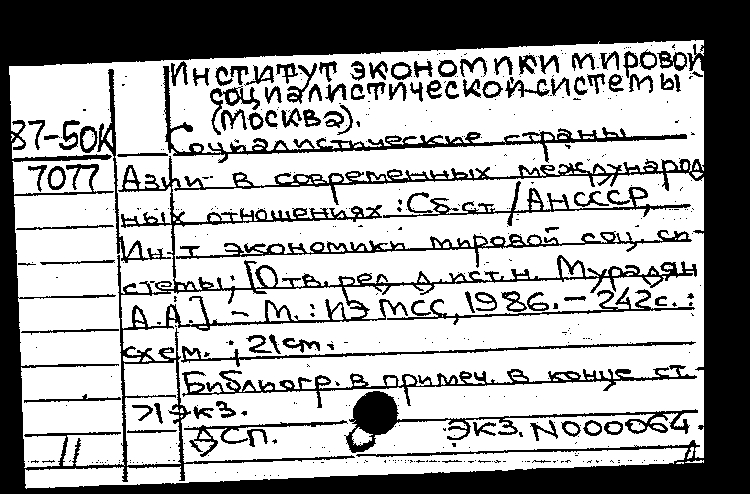 Институт экономики мировой
социалистической системы
(Москва).
87-50К
Социалистические страны
7077
Азии в современных международ
ных отношениях : Сб. ст. / АН СССР,
Ин-т экономики мировой соц. си-
стемы; [Отв. ред. д. ист. н. Мурадян
А.А.]. – М. : ИЭМСС, 1986. – 242с. :
схем. ; 21 см.
Библиогр. в примеч. в конце ст.-
>1 экз.
ДСП. экз. N000064.
11